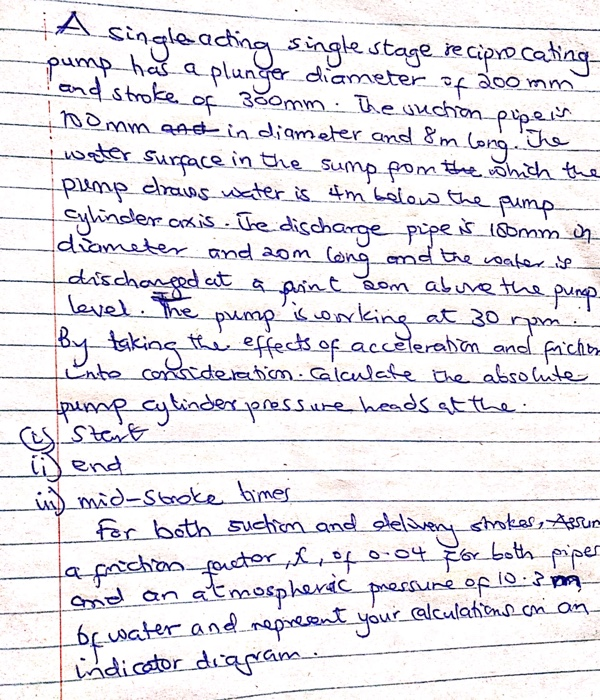 A single acting single stage reciprocating
pump has a plunger diameter of 200mm
and stroke of 300mm. The suction pipe is
100mm and in diameter and 8m long. The
water surface in the sump from the which the
pump draws water is 4m below the pump
cylinder axis. The discharge pipe is 100mm in
diameter and 20m long and the water is
discharged at a point 20m above the pump
level. The pump is working at 30 rpm.
By taking the effects of acceleration and friction
into consideration. Calculate the absolute
pump cylinder pressure heads at the.
(i) Start
ii) end
iii) mid-stroke times
For both suction and delivery strokes, Assum
a friction factor, f, of 0.04 For both pipes
and an atmospheric pressure of 10.3m
of water and represent your calculations on an
indicator diagram.